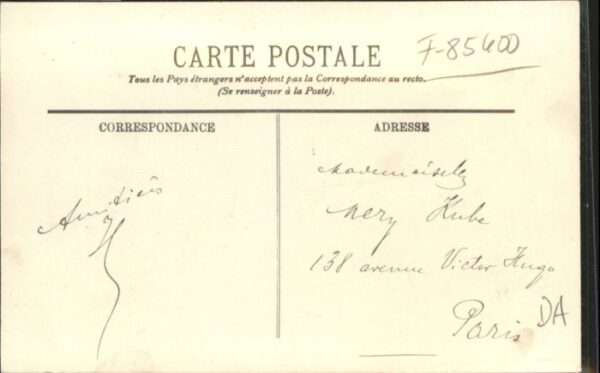 CARTE POSTALE
F-85400
Tous les Pays étrangers n'acceptent pas la Correspondance au recto.
(Se renseigner à la Poste).
CORRESPONDANCE
ADRESSE
Amitiés
Mademoiselle
Mery Kube
138 avenue Victor Hugo
Paris
DA